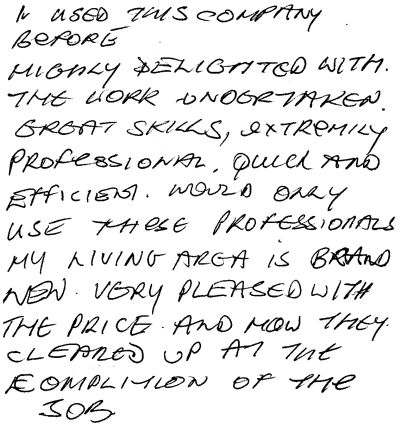 I USED THIS COMPANY
BEFORE
HIGHLY DELIGHTED WITH.
THE WORK UNDERTAKEN.
GREAT SKILLS, EXTREMILY
PROFESSIONAL, QUICK AND
EFFICIENT. WOULD ONLY
USE THESE PROFESSIONALS
MY LIVING AREA IS BRAND
NEW. VERY PLEASED WITH
THE PRICE. AND HOW THEY
CLEARED UP AT THE
COMPLITION OF THE
JOB